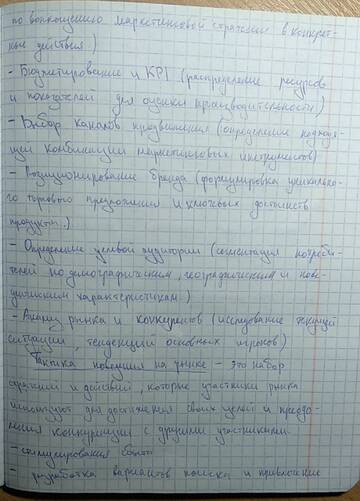 по воплощению маркетинговой стратегии в конкрет-
ные действия)
- Бюджетирование и KPI (распределение ресурсов
и показателей для оценки производительности)
- Выбор каналов продвижения (определение подходя-
щей комбинации маркетинговых инструментов)
- Позиционирование бренда (формулировка уникально-
го торгового предложения и ключевых достоинств
продукта.)
- Определение целевой аудитории (сегментация потреби-
телей по демографическим, географическим и пове-
денческим характеристикам.)
- Анализ рынка и конкурентов (исследование текущей
ситуации, тенденций основных игроков)
Тактика поведения на рынке - это набор
стратегий и действий, которые участники рынка
используют для достижения своих целей и преодо-
ления конкуренции с другими участниками.
- стимулирования сбыта
- разработка вариантов поиска и привлечение